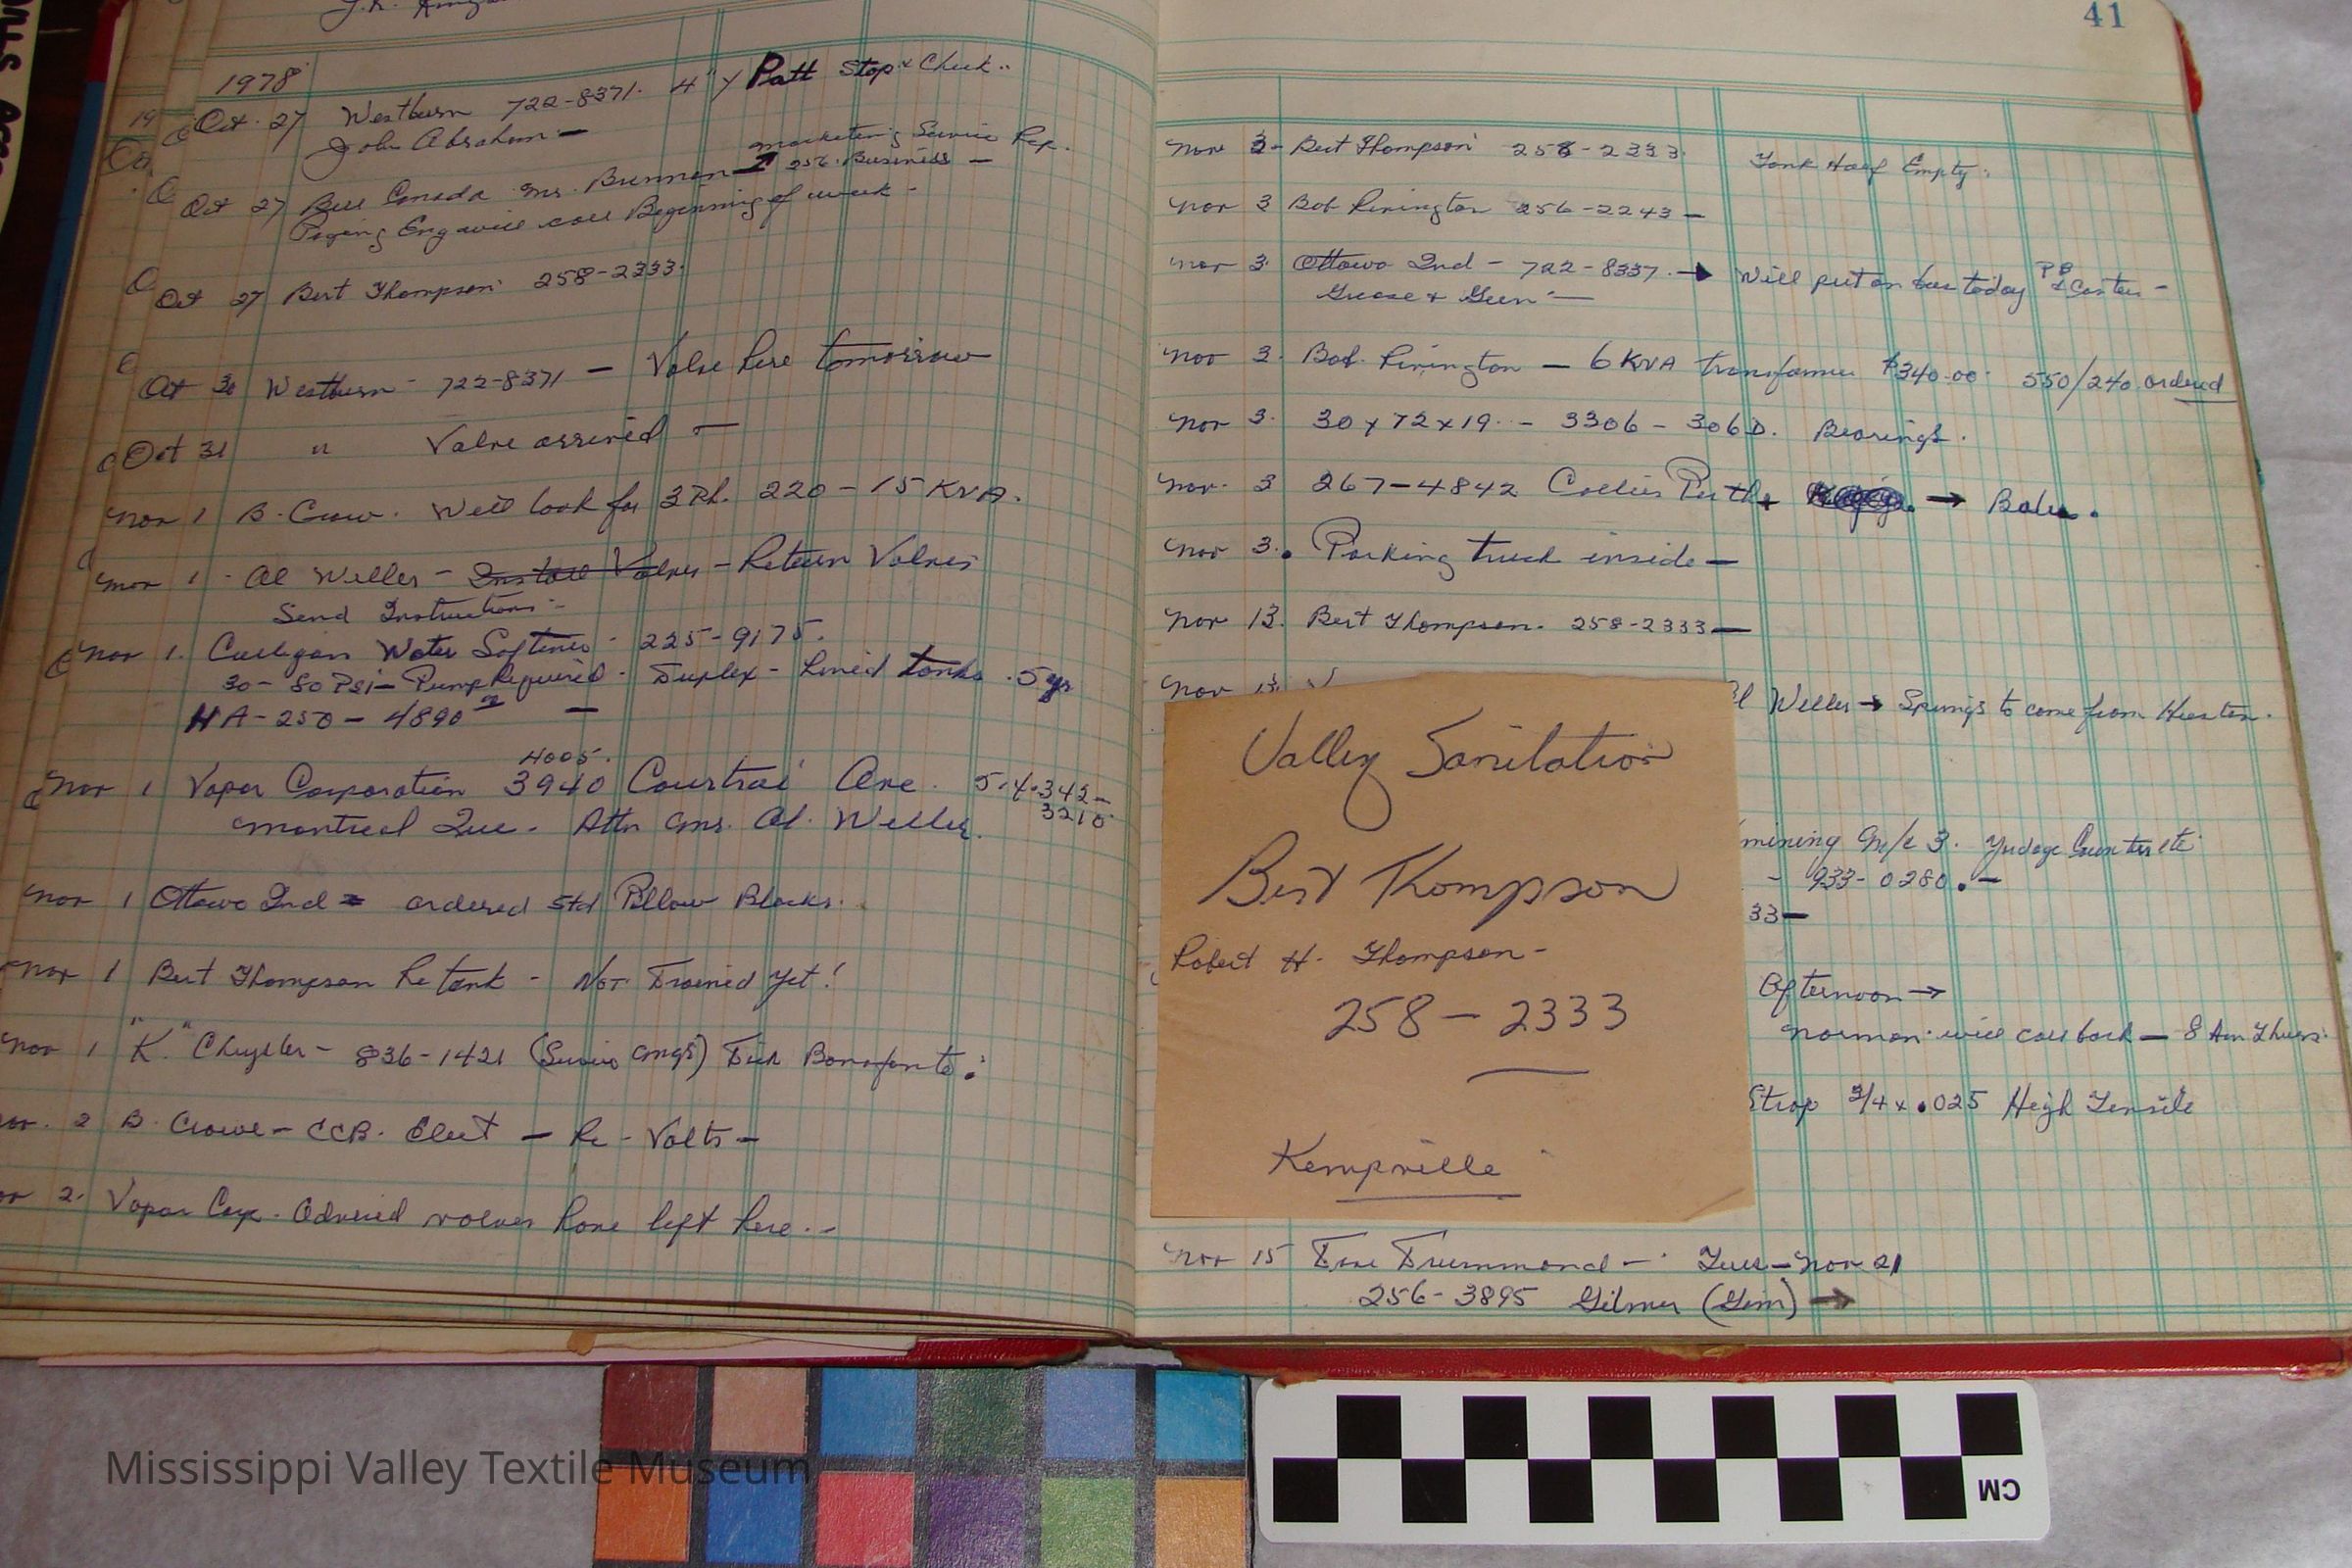 1978
Oct. 27 Westburn 722-8371. 4" Y Patt Stop & Check..
John Abraham -
Marketing Service Rep.
Oct 27 Bell Canada Mr. Brennan 256. Business -
Paging Eng will call Beginning of week -
Oct 27 Bert Thompson 258-2333.
Oct 30 Westburn - 722-8371 - Valve here tomorrow
Oct 31 " Valve arrived -
Nov 1 B. Crow. Will look for 3 Ph. 220 - 15 KVA.
Nov 1 - Al Weller - Install Valves - Return Valves
Send Instructions -
Nov 1. Culligan Water Softener - 225-9175.
30 - 80 PSI - Pump Required - Duplex - Lined tanks . 5 yr
HA-250 - 4890 -
4005.
Nov 1 Vapor Corporation 3940 Courtrai Ave. 514.342-
3210
Montreal Que. Attn Mr. Al. Weller.
Nov 1 Ottawa Ind - ordered std Pillow Blocks.
Nov 1 Bert Thompson Re tank - Not Drained Yet!
Nov 1 "K" Chrysler - 836-1421 (Service Mgr) Dick
Nov. 2 B. Crowe - CCB. Elect - Re - Volts -
Nov 2. Vapor Corp. Advised valves have left here. -
41
Nov 3 - Bert Thompson 258-2333. Tank Half Empty.
Nov 3 Bob Rivington 256-2243 -
Nov 3 Ottawa Ind - 722-8337. → Will put on bus today PB & Casters -
Grease & Gun -
Nov 3. Bob. Rivington - 6 KVA transformer $340.00 550/240 ordered
Nov 3. 30 x 72 x 19. - 3306 - 306D. Bearings.
Nov. 3 267-4842 Collies Perth → Bob.
Nov 3. Parking truck inside -
Nov 13. Bert Thompson. 258-2333 -
Nov 13
Weller → Springs to come from Houston.
Valley Sanitation
Bert Thompson
Robert H. Thompson -
258 - 2333
Kempville
mining M/c 3. Yardage Counter etc
- 933-0280. -
33 -
Afternoon →
Norman will call back - 8 Am Thurs.
Strap 3/4 x .025 High Tensile
Nov 15 Dave Drummond - Tues - Nov 21
256-3895 Gilmer (Jim) →
CM
Mississippi Valley Textile Museum